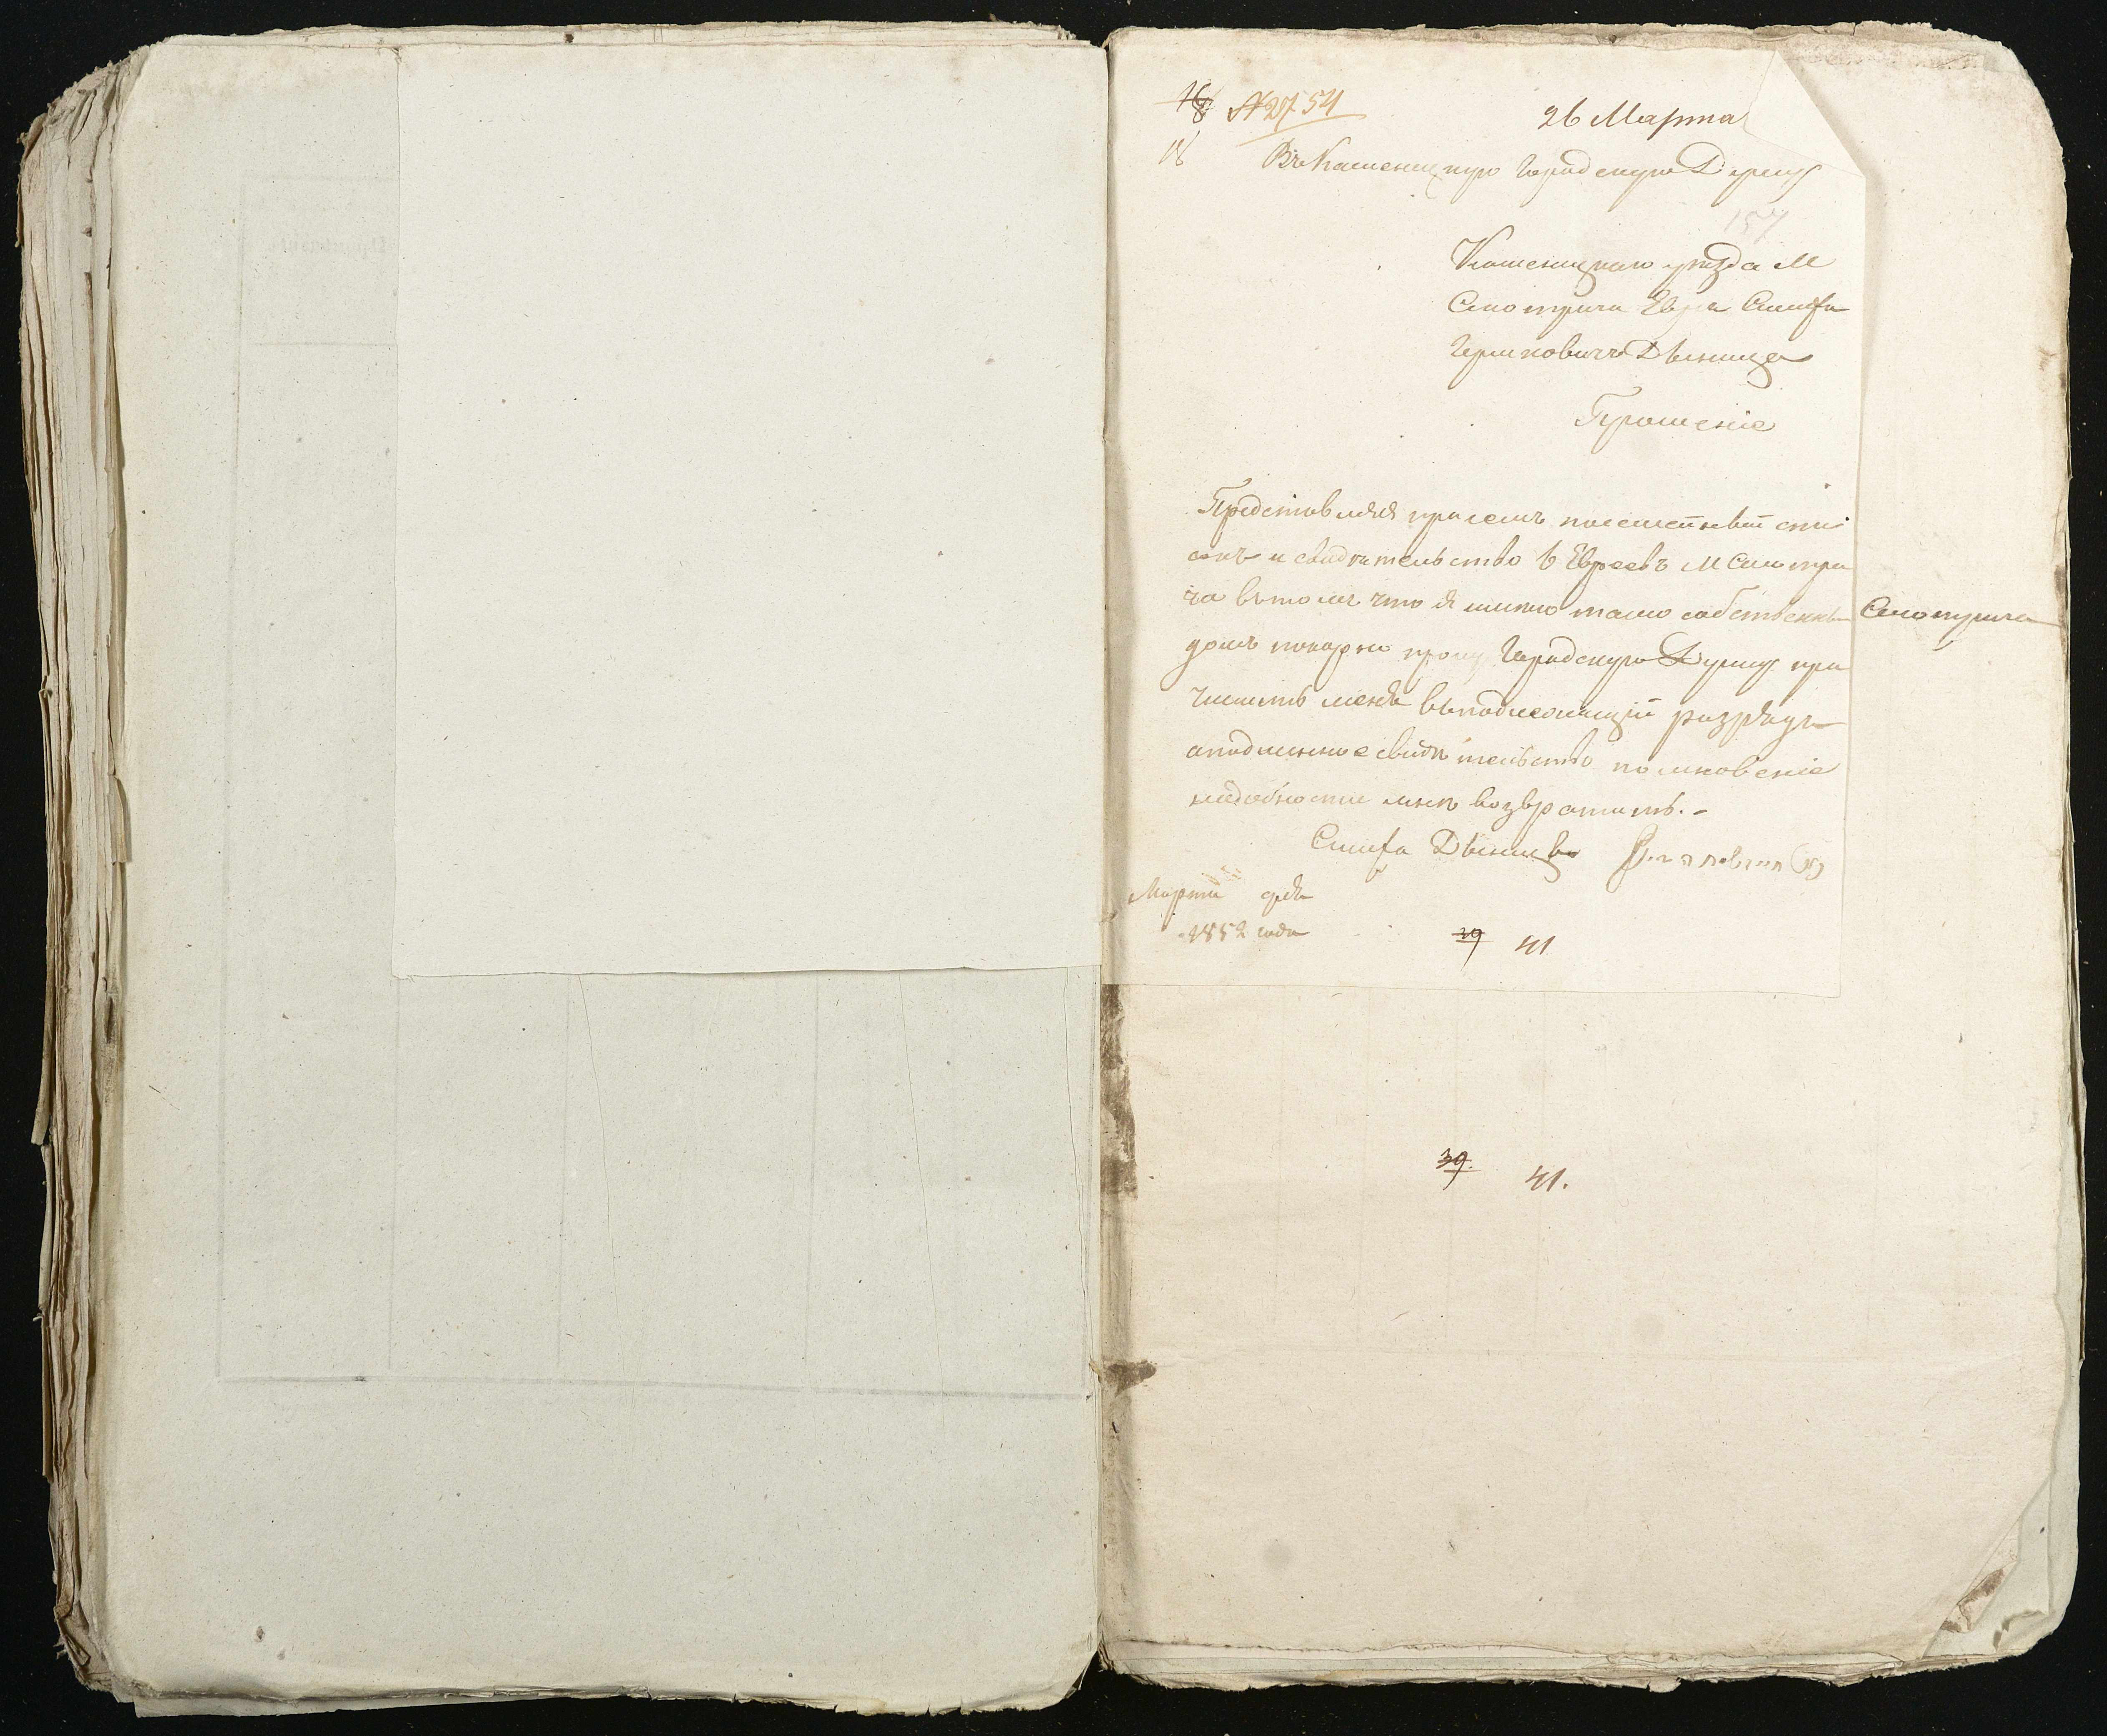 18 № 2754
26 Марта
18 Въ Каменецкую Городскую Думу
157
Каменецкаго уезда М
Смотрича Еврея Симха
Гершковича Двиница
Прошение
Представляя при семъ посемейный спи
сокъ и свидетельство 6 Евреевъ М Смотри
ча въ томъ что я имею тамо собственны
Смотрича
домъ покорно прошу Городскую Думу при
числить меня въ подлежащій разрядъ
а подлинное свидетельство по миновение
надобности мне возвратить. -
Симха
Марта дня
1852 года
39 41
39. 41.